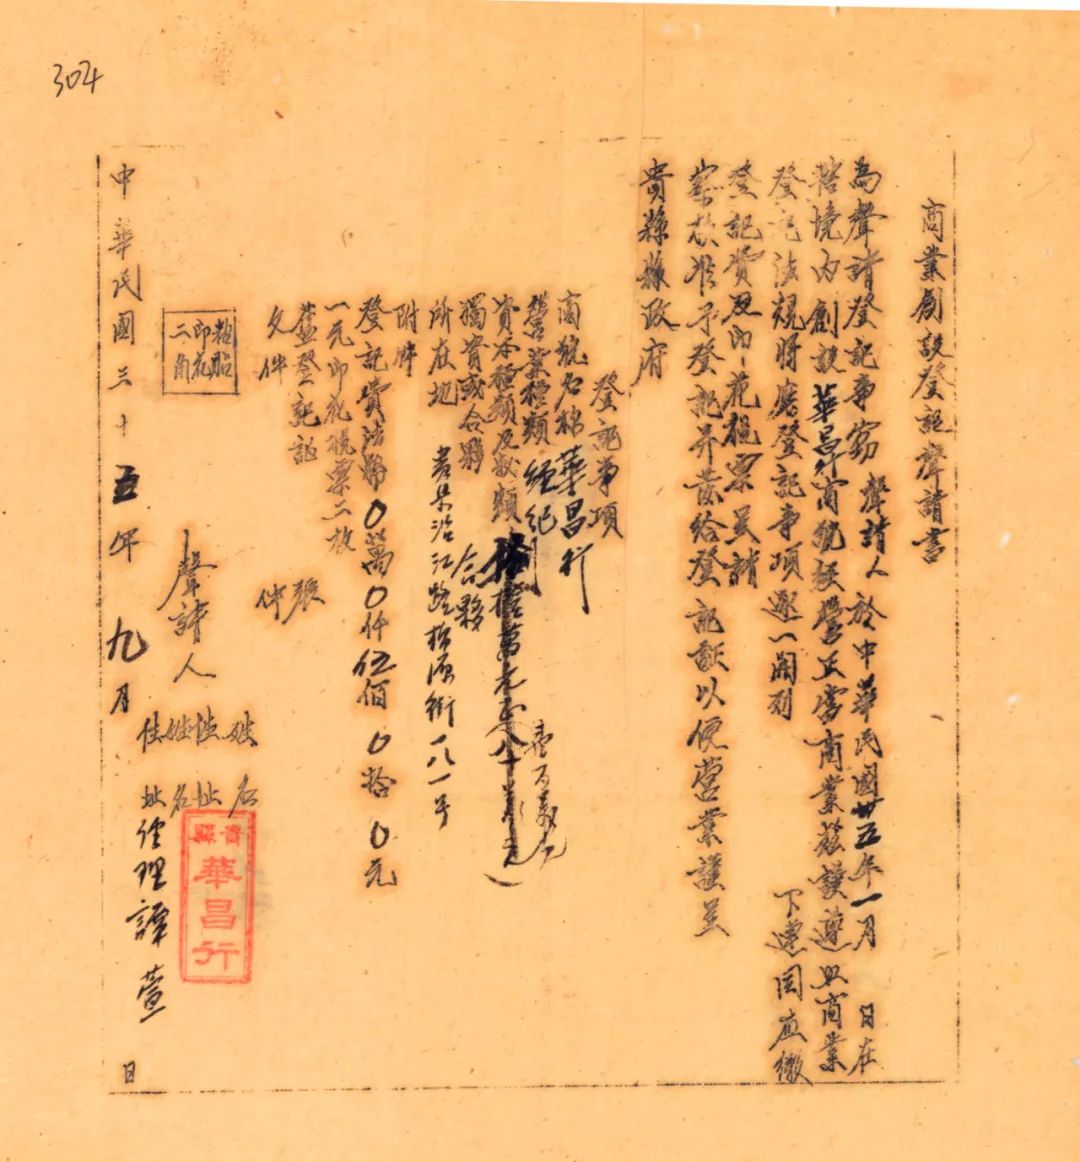 304
商業創設登記聲請書
為聲請登記事竊 聲請人於中華民國卅五年一月 日在
轄境內創設華昌行商號經營正當商業茲謹遵照商業
登記法規將應登記事項逐一開列 下連同應繳
登記費及印花稅票呈請
察核准予登記并發給登記証以便營業謹呈
貴縣縣政府
登記事項
商號名稱 華昌行
營業種類 經紀
資本種類及數額 拾萬元正 壹百萬元
獨資或合夥 合夥
所在地 貴縣沿江路 街一八一号
附件
登記費法幣0萬0仟伍佰0拾0元
一元印花稅票二枚
蓋登記証 張
文件 件
粘貼
印花
二角
聲請人 姓名
住址
姓名
住址
經理譚萱
貴縣
華昌行
中華民國三十五年九月 日